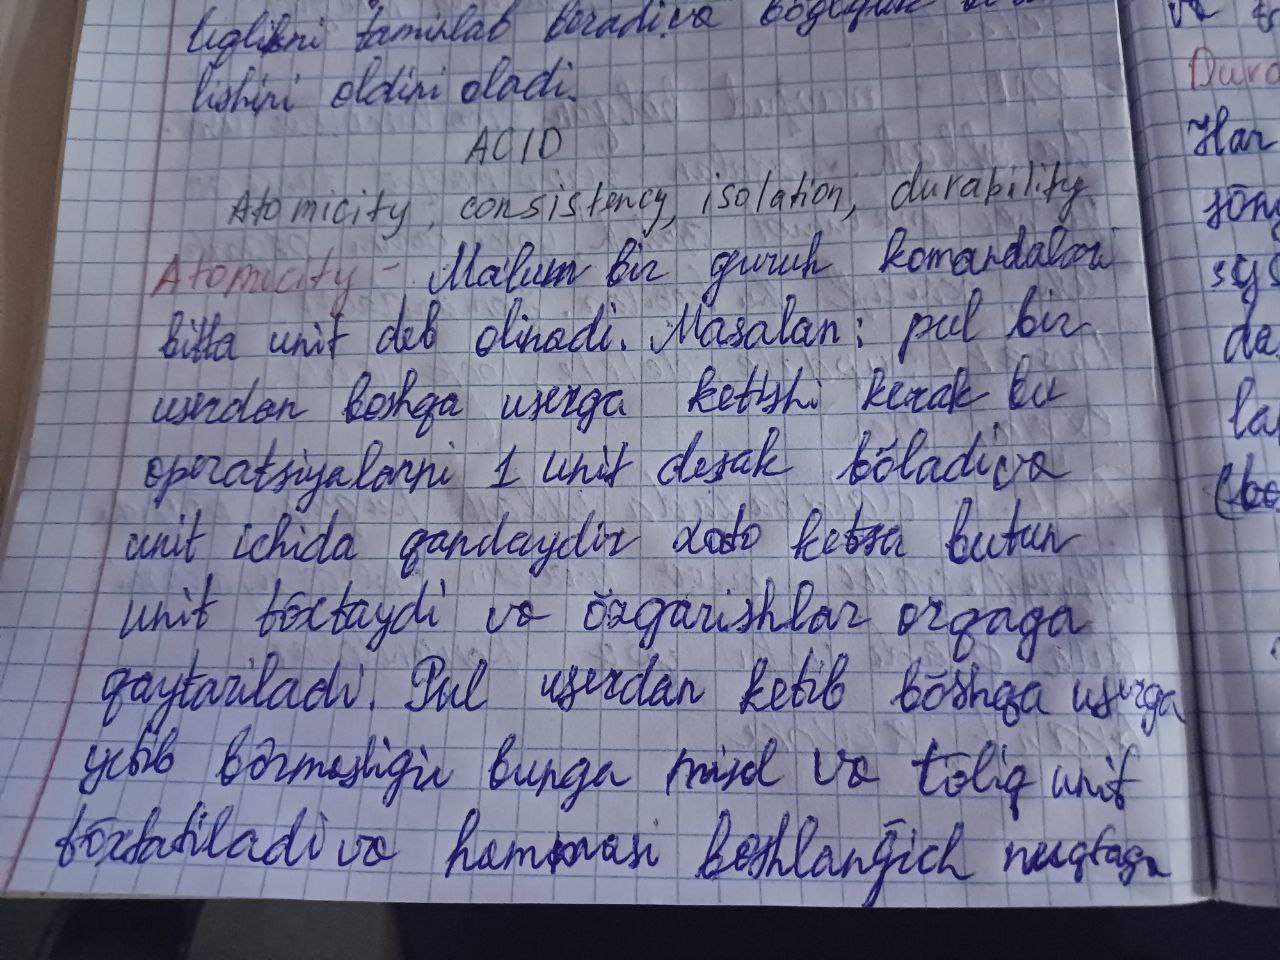 ta'minlab boradi va
lishini oldini oladi.
ACID
Atomicity, consistency, isolation, durability
Atomicity - Ma'lum bir guruh komandalari
bitta unit deb olinadi. Masalan: pul bir
userdan boshqa userga ketishi kerak bu
operatsiyalarni 1 unit desak bōladi va
unit ichida qandaydir xato ketsa butun
unit tōxtaydi va ōzgarishlar orqaga
qaytariladi. Pul userdan ketib bōshqa userga
yetib bōrmasligii bunga misol va tōliq unit
tōxtatiladi va hammasi boshlanḡich nuqtaga
Dura
Har
jōng
sys
da
la